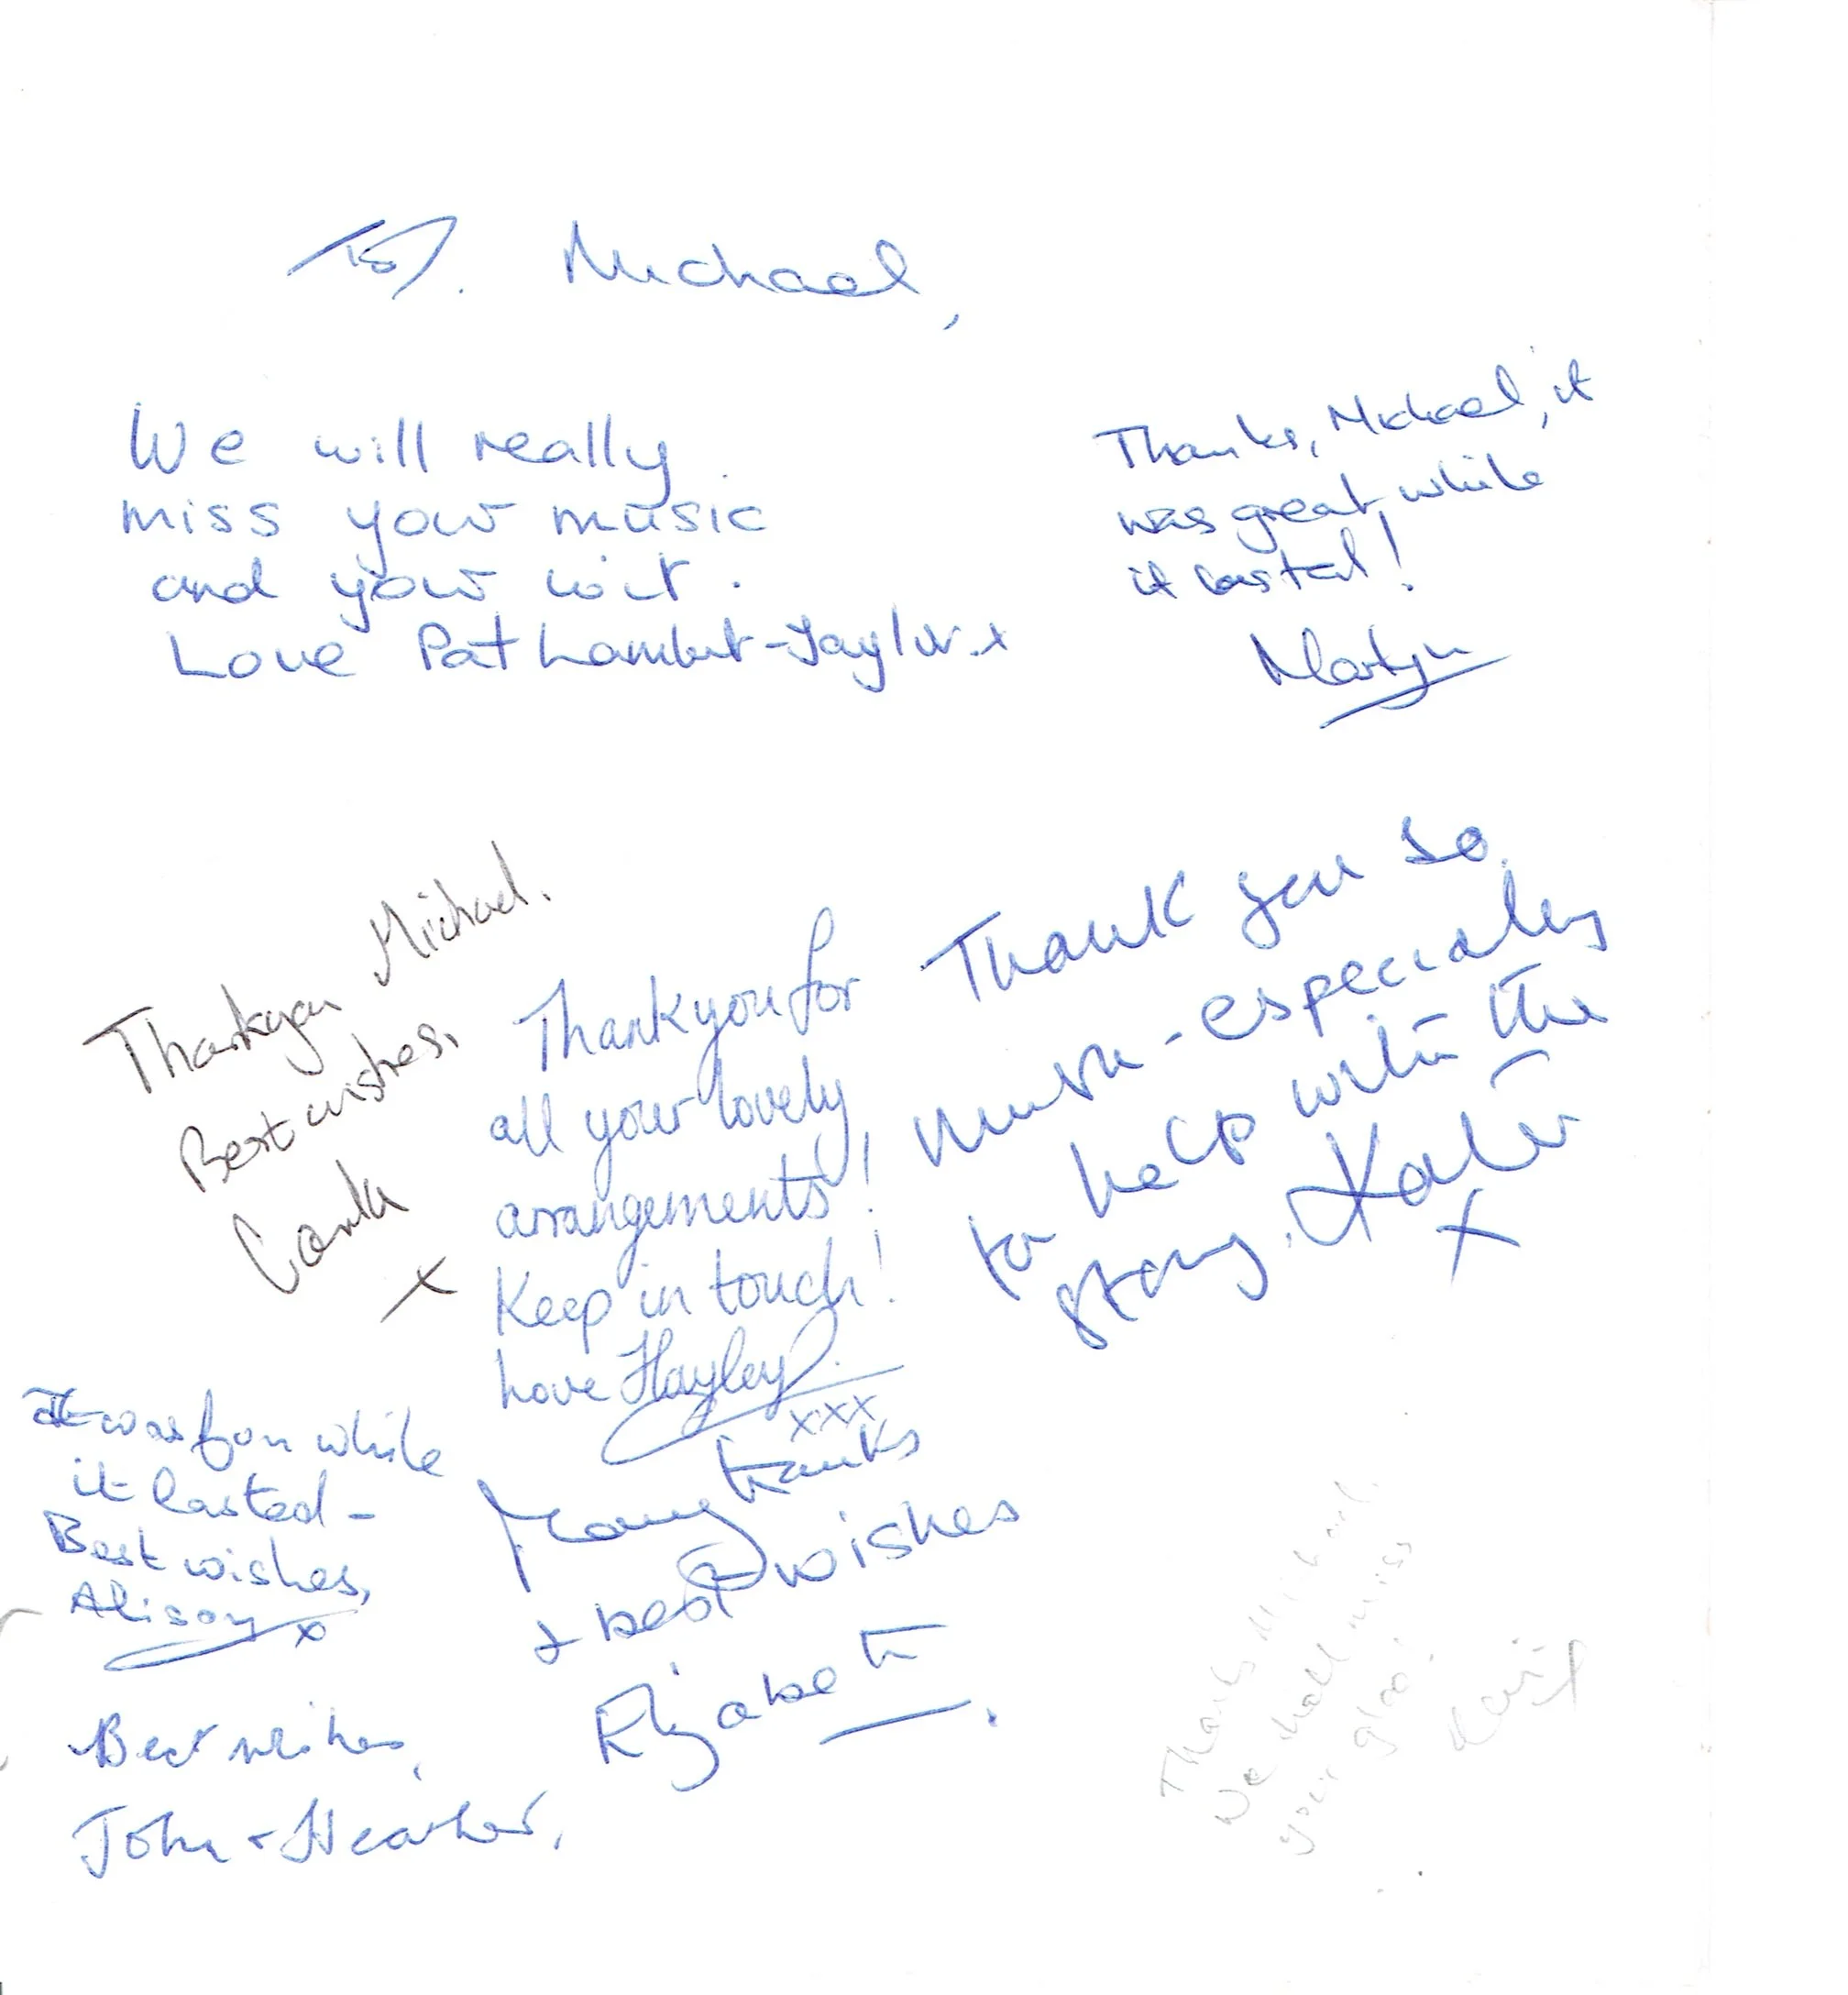 To. Michael,
We will really
miss your music
and your wit.
Love Pat Lambert-Taylor. x
Thanks, Michael, it
was great while
it lasted!
Martyn
Thankyou Michael.
Best wishes,
x
Thankyou for
all your lovely
arrangements!
Keep in touch!
Love Hayley
xxx
Thank you so
much - especially
for help with the
x
It was fun while
it lasted -
Best wishes,
Alison x
Many thanks
& best wishes
Elizabeth.
Best wishes,
John & Heather.
Thanks
We shall miss
you